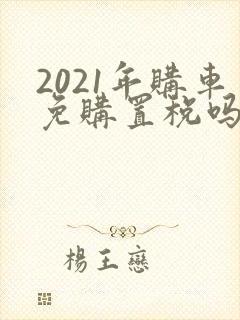 2021年購車
免購置稅嗎
楊王戀